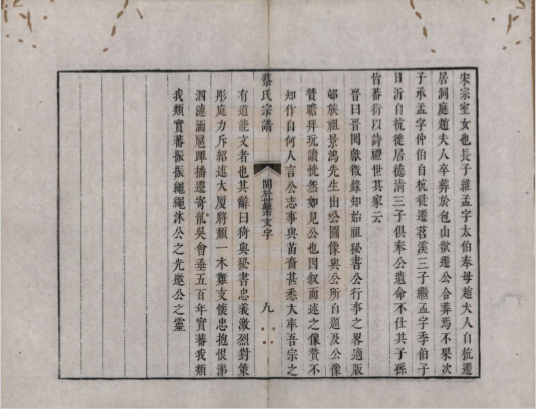 宋宗室女也長子維孟字太伯奉母趙夫人自杭遷
居洞庭趙夫人卒葬於包山欲遷公合葬焉不果次
子承孟字仲伯自杭徙遷苕溪三子繼孟字季伯子
曰沂自杭徙居德清三子俱奉公遺命不仕其子孫
皆蕃衍以詩禮世其家云
晉曰晉閱獻徵錄知始祖秘書公行事之畧適版
邨族祖景鴻先生出公圖像與公所自題及公像
贊瞻拜玩讀恍然如見公也因叙而述之像贊不
知作自何人言公志事與苗裔甚悉大率吾宗之
蔡氏宗譜
關於世系文字
九
有道能文者也其辭曰猗與秘書忠義激烈對策
彤庭力斥紹述大厦將顛一木難支懷忠抱恨涕
泗漣洏尾單播遷寄亂吳會垂五百年實蕃我類
我類實蕃振振繩繩沐公之光邀公之靈